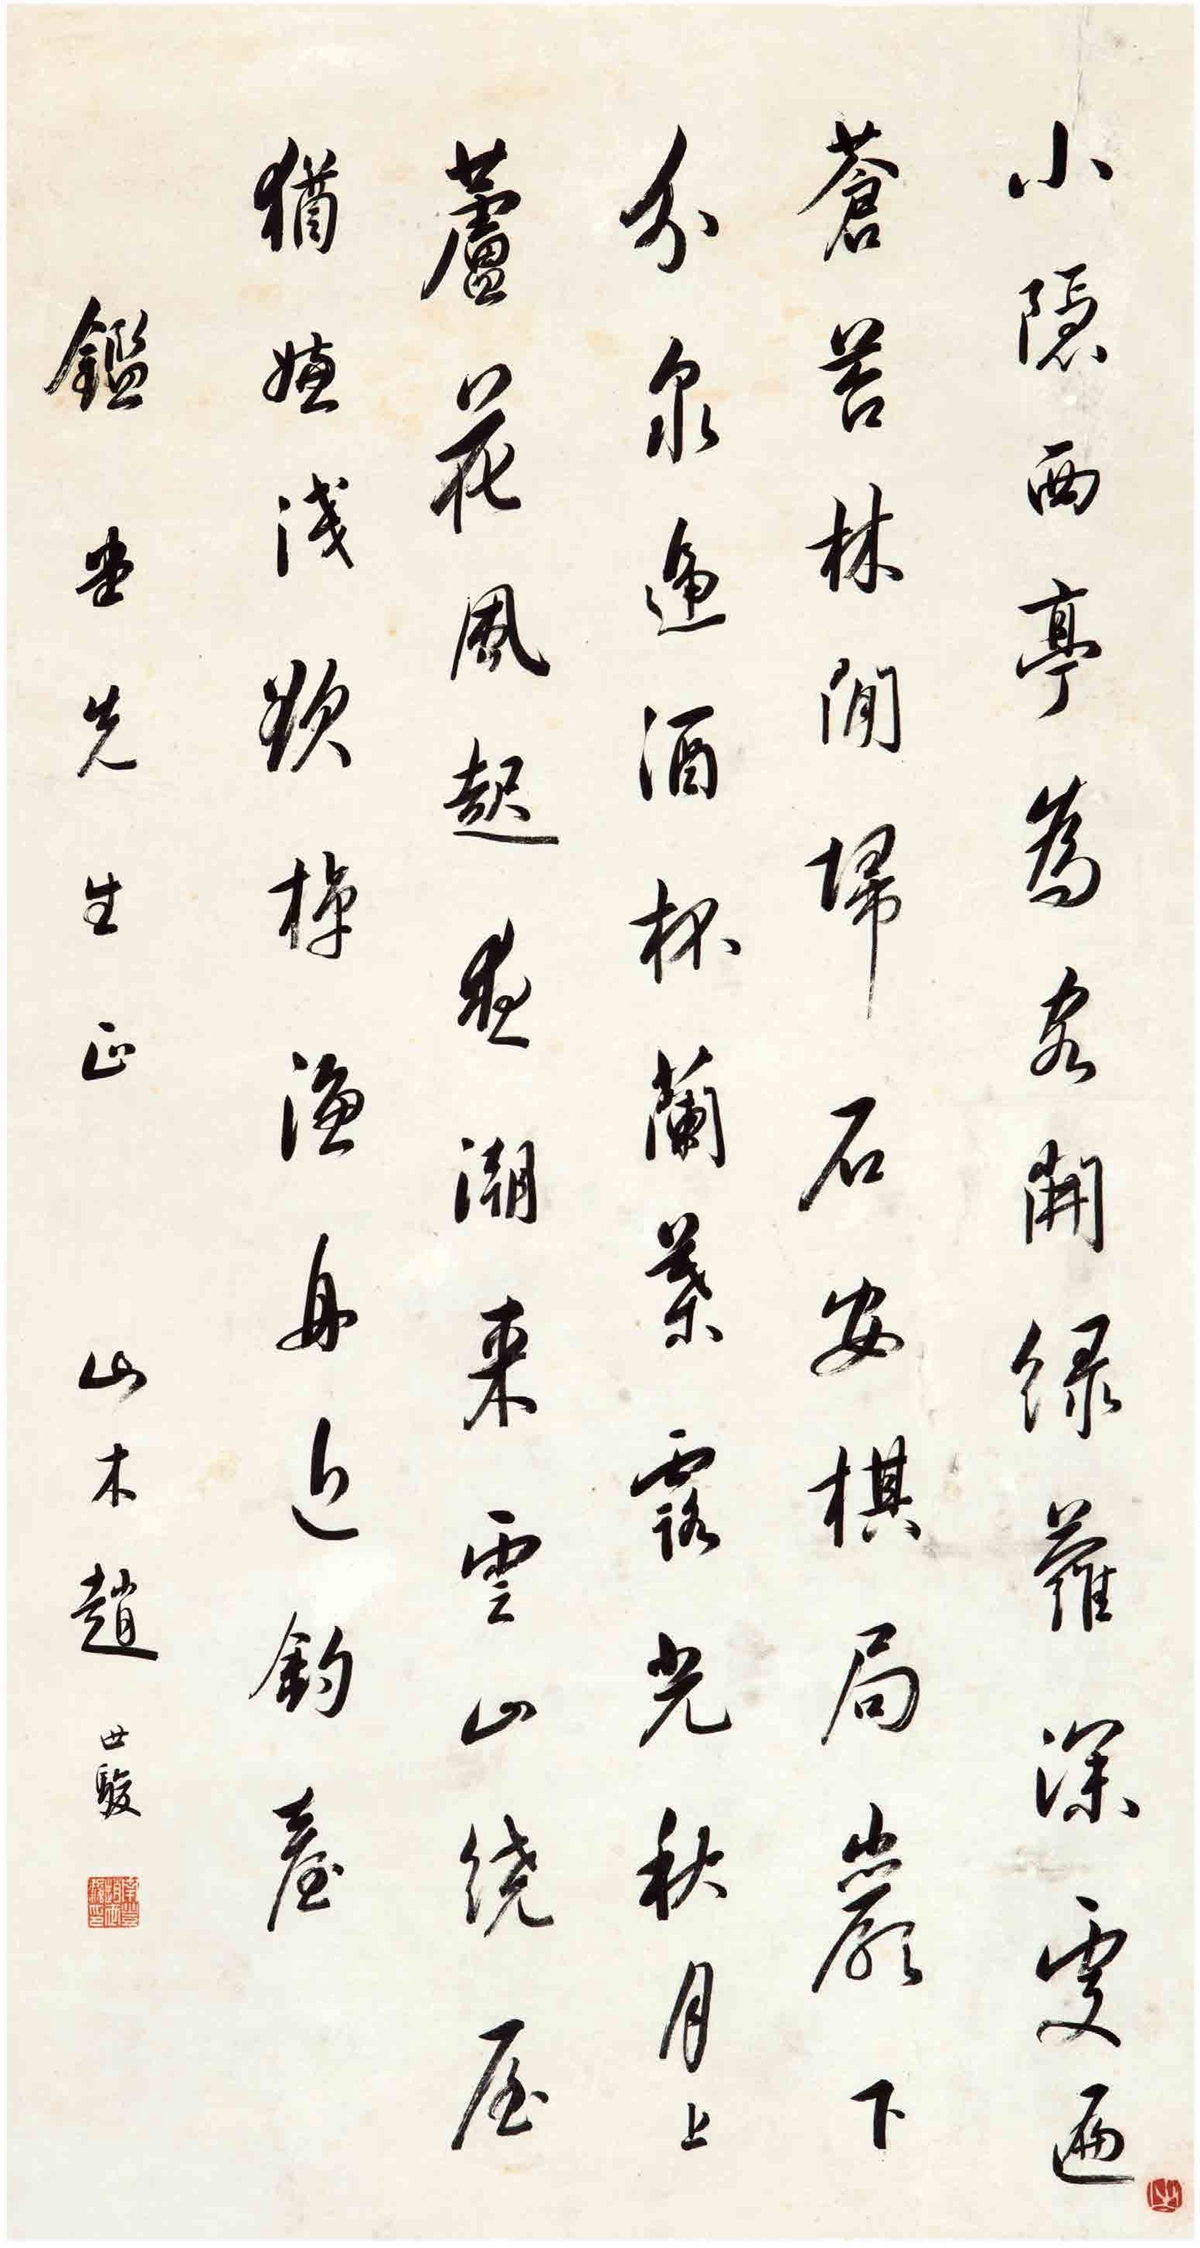 小隱西亭為客開綠蘿深處遍
蒼苔林間埽石安棋局巖下
分泉遞酒杯蘭葉露光秋月上
蘆花風起夜潮來雲山繞屋
猶嫌淺欲棹漁舟近釣臺
鑑堂先生正 山木趙世駿